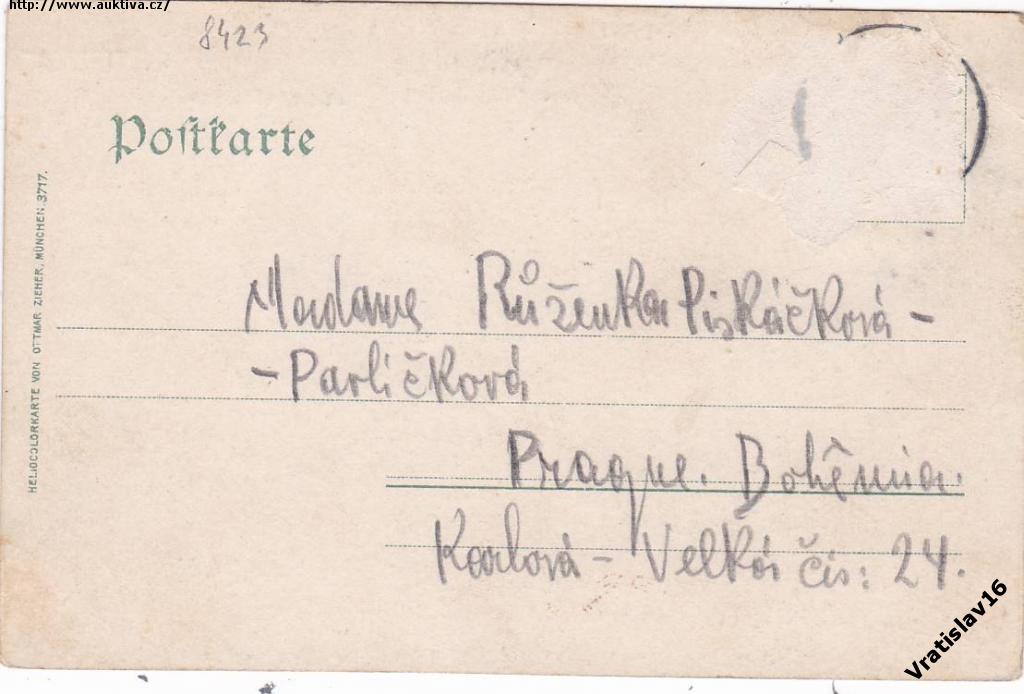 http://www.auktiva.cz/
8423
Postkarte
HELIOCOLORKARTE VON OTTMAR ZIEHER, MÜNCHEN. 3717.
Madame Růženka Piskáčková -
- Pavličková
Prague. Bohêmia.
Karlova - Velká čís: 24.
Vratislav16